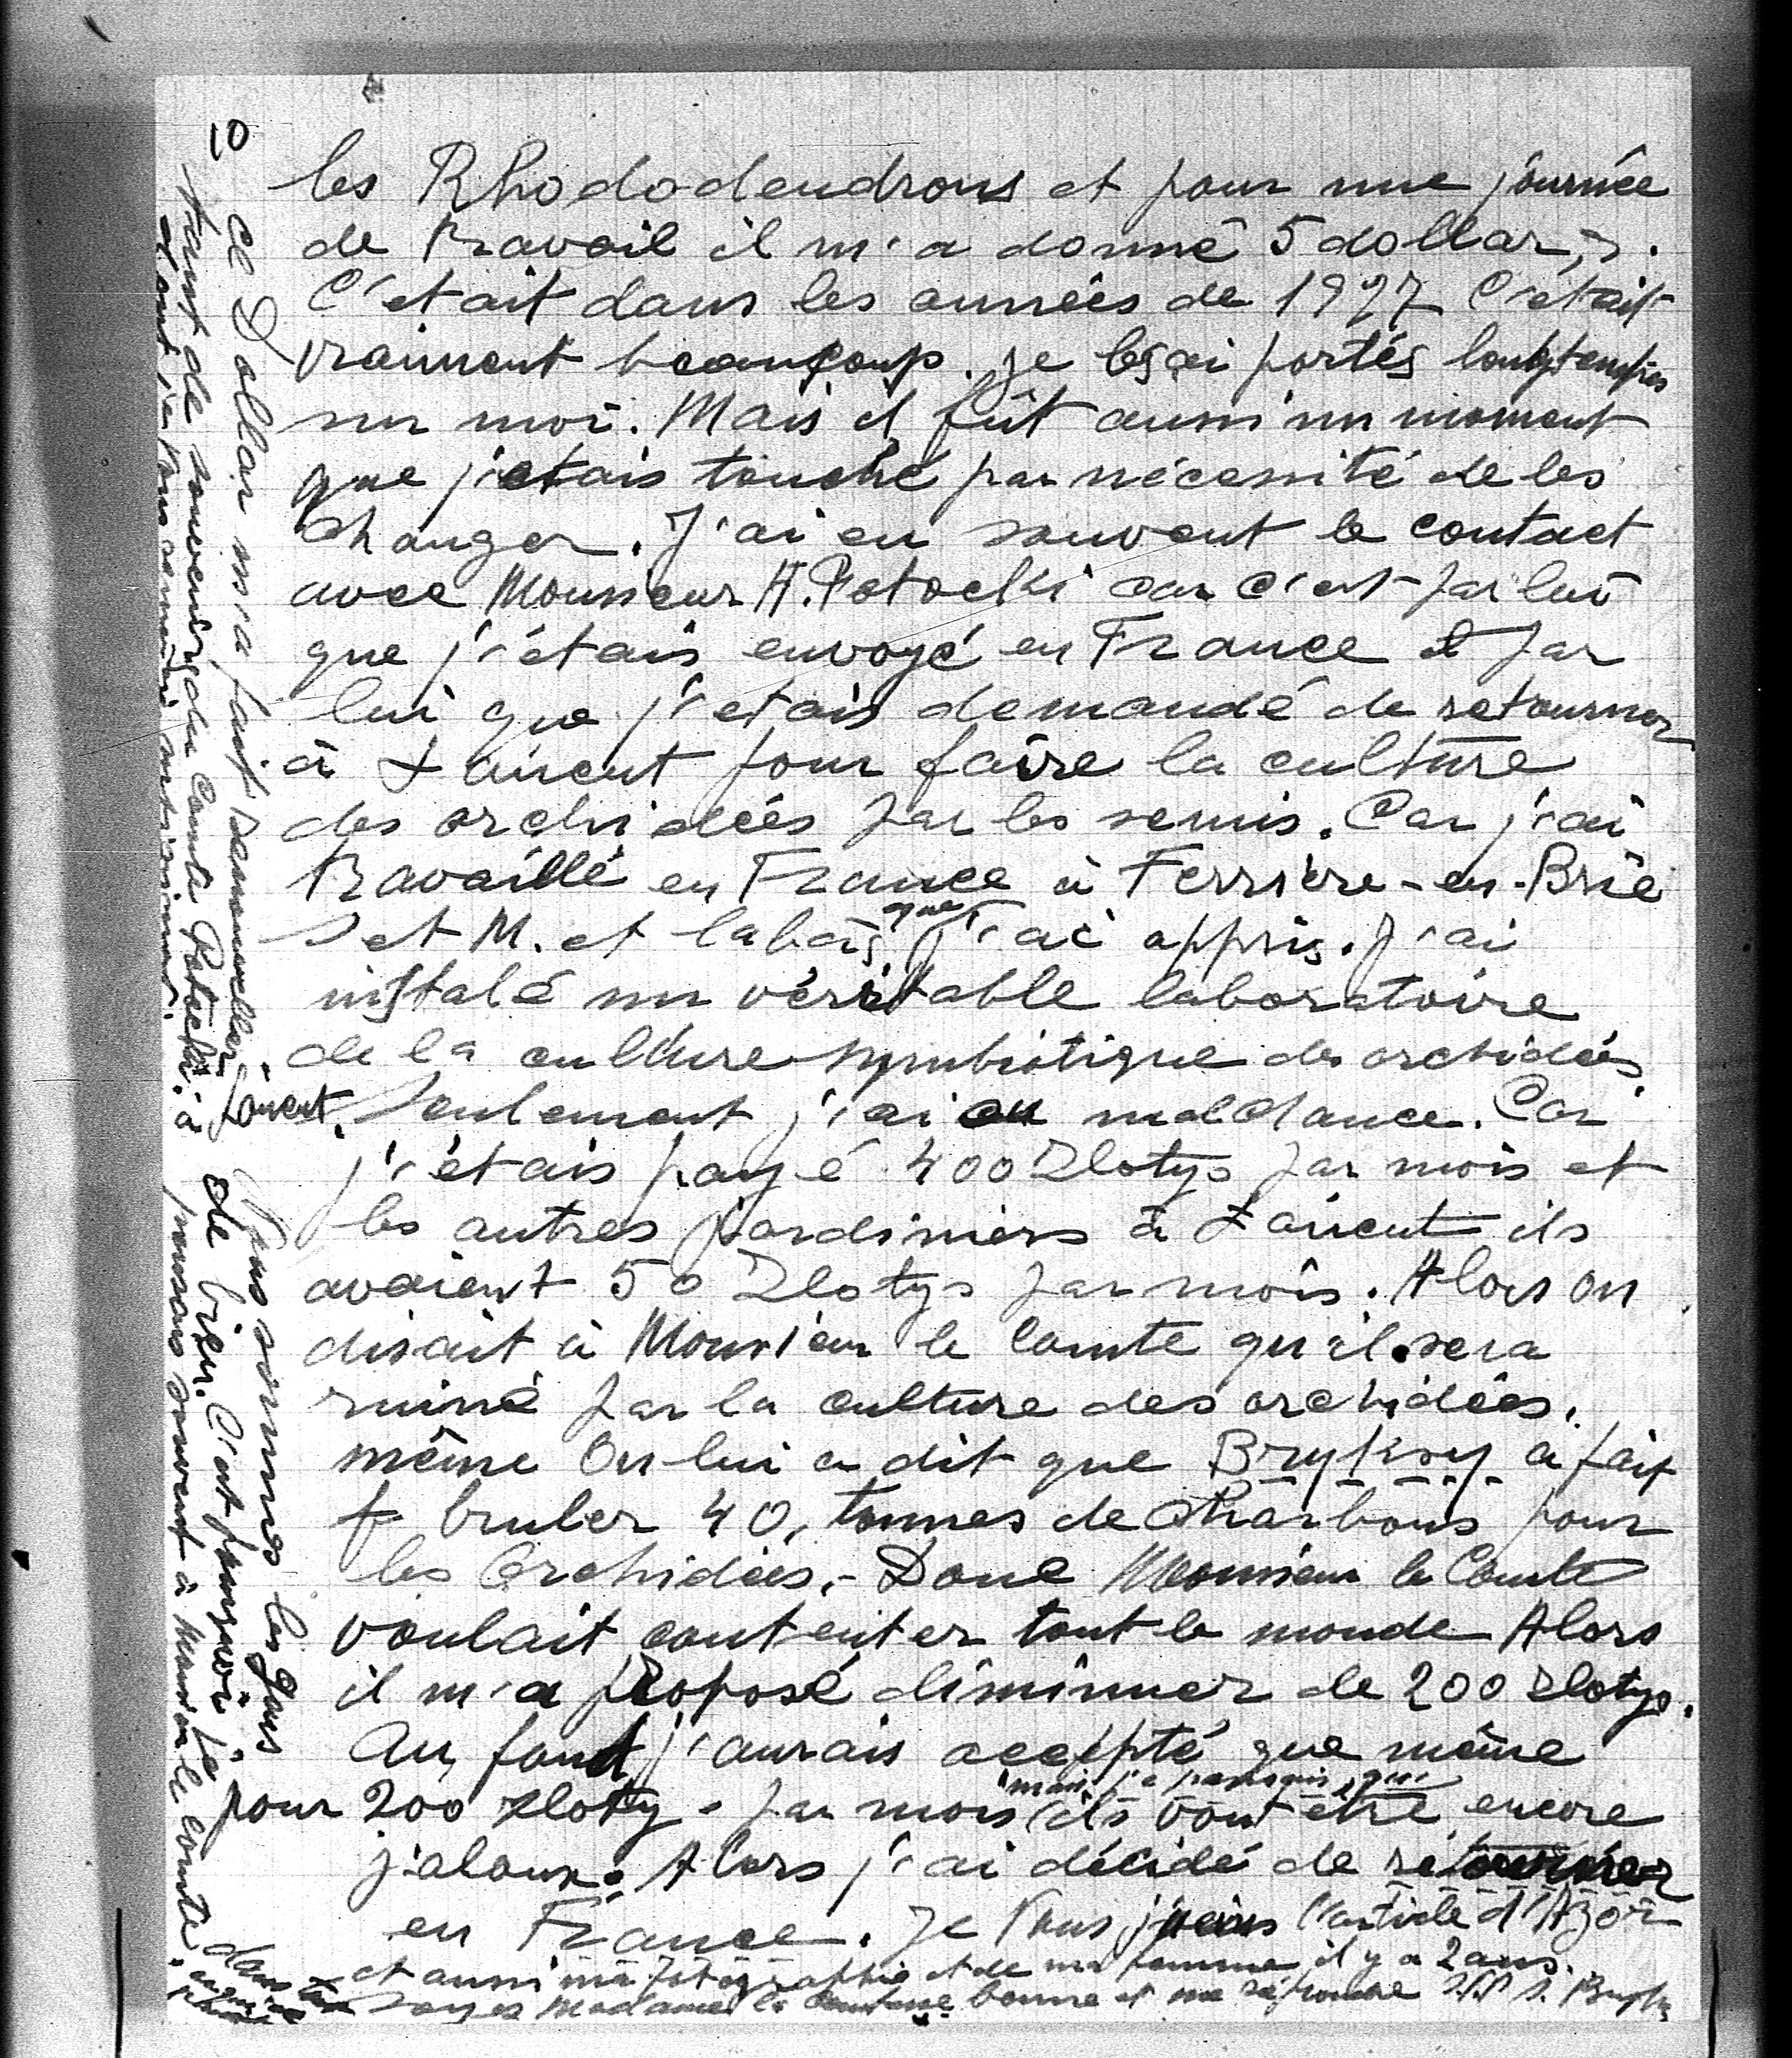 10
les Rhododendrons et pour une journée
de travail il m'a donné 5 dollars.
C'etait dans les années de 1927 C'était
vraiment beaucoup. je les ai portés longtemps
sur moi. Mais il fût aussi un moment
que j'etais touché par nécessité de les
changer. J'ai eu souvent le contact
avec Monsieur A. Potocki car c'est par lui
que j'étais envoyé en France et par
lui que j'etais demandé de retourner
à Łańcut pour faire la culture
des orchidées par les semis. Car j'ai
travaillé en France à Ferrière-en-Brie
S et M. et labas que j'ai appris. J'ai
installé un véritable laboratoire
de la culture symbiotique des orchidées.
Seulement j'ai eu malchance. Car
j'étais payé 400 Zlotys par mois et
les autres jardiniers à Łańcut ils
avaient 50 Zlotys par mois. Alors on
disait à Monsieur le Comte qu'il sera
ruiné par la culture des orchidées.
même On lui a dit que Bryksy a fait
bruler 40 tonnes de Charbons pour
les Orchidées.- Donc Monsieur le Comte
voulait contenter tout le monde Alors
il m'a proposé diminuer de 200 zlotys.
Au fond j'aurais accepté que même
pour 200 zloty par mois mais j'a que ils vont être encore
jaloux. Alors j'ai décidé de retourner
en France. Je Vous l'article d'Azor
et aussi ma fotographie et de ma femme il y a 2 ans.
soyes Madame la Comtesse bonne et me répondre
ce Dollar m'a fait
tant de souvenirs du Comte Potocki à Łańcut.
nous sommes les gens
de bien. C'est pourquoi je
pensais souvent à Monsieur le Comte
dans